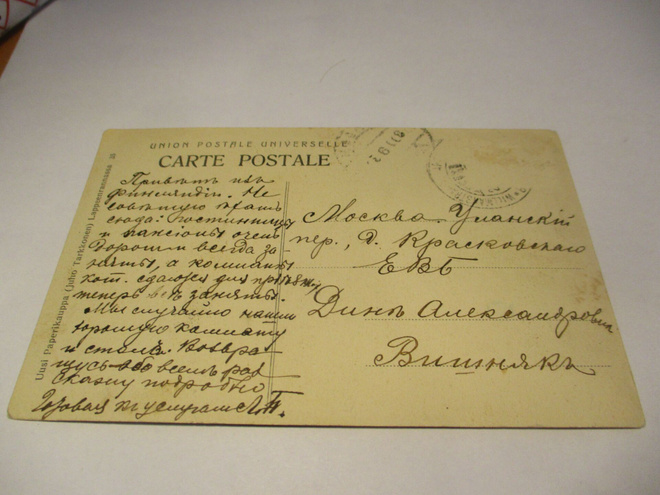 UNION POSTALE UNIVERSELLE
CARTE POSTALE
Uusi Paperikauppa (Juho Tarkiainen) Lappeenrannassa
Привѣтъ изъ
Финляндіи. Не
совѣтую ѣхать
сюда: гостинницы
и пансіоны очень
дороги и всегда за-
няты, а комнаты
кот. сдаются для пріѣзж.
теперь всѣ заняты.
Мы случайно нашли
хорошую комнату
и столъ. Возвра-
щусь обо всемъ раз
скажу подробно
Готовая къ услугамъ
Москва. Уланскій
пер., д. Красковскаго
ЕВБ
Динѣ Александровнѣ
Вишнякъ